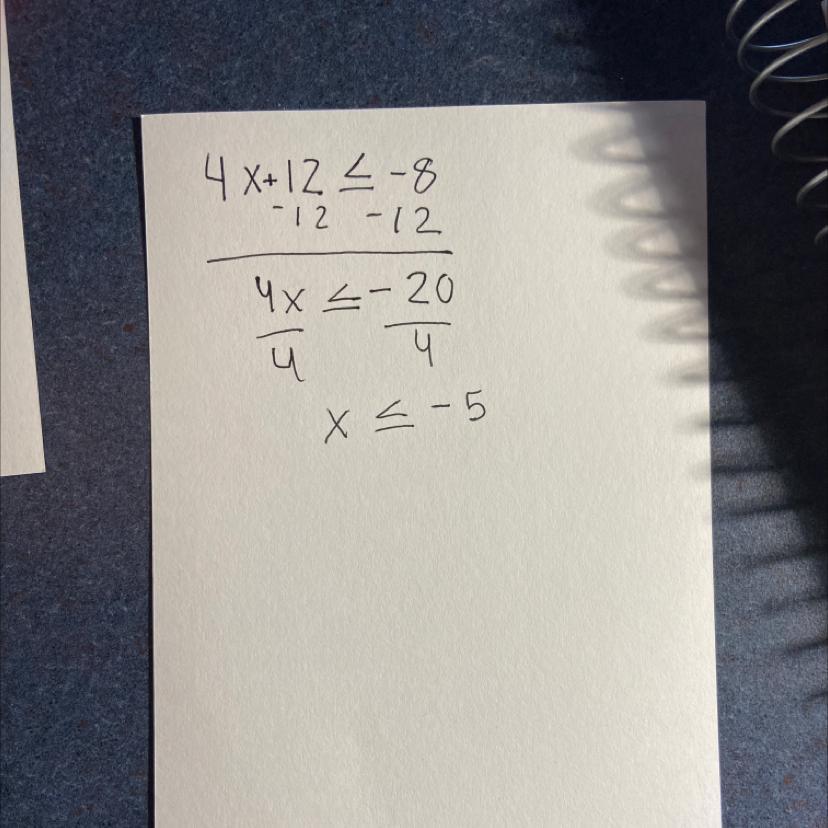 4x+12 ≤ -8
-12 -12
4x ≤ -20
4 4
x ≤ -5